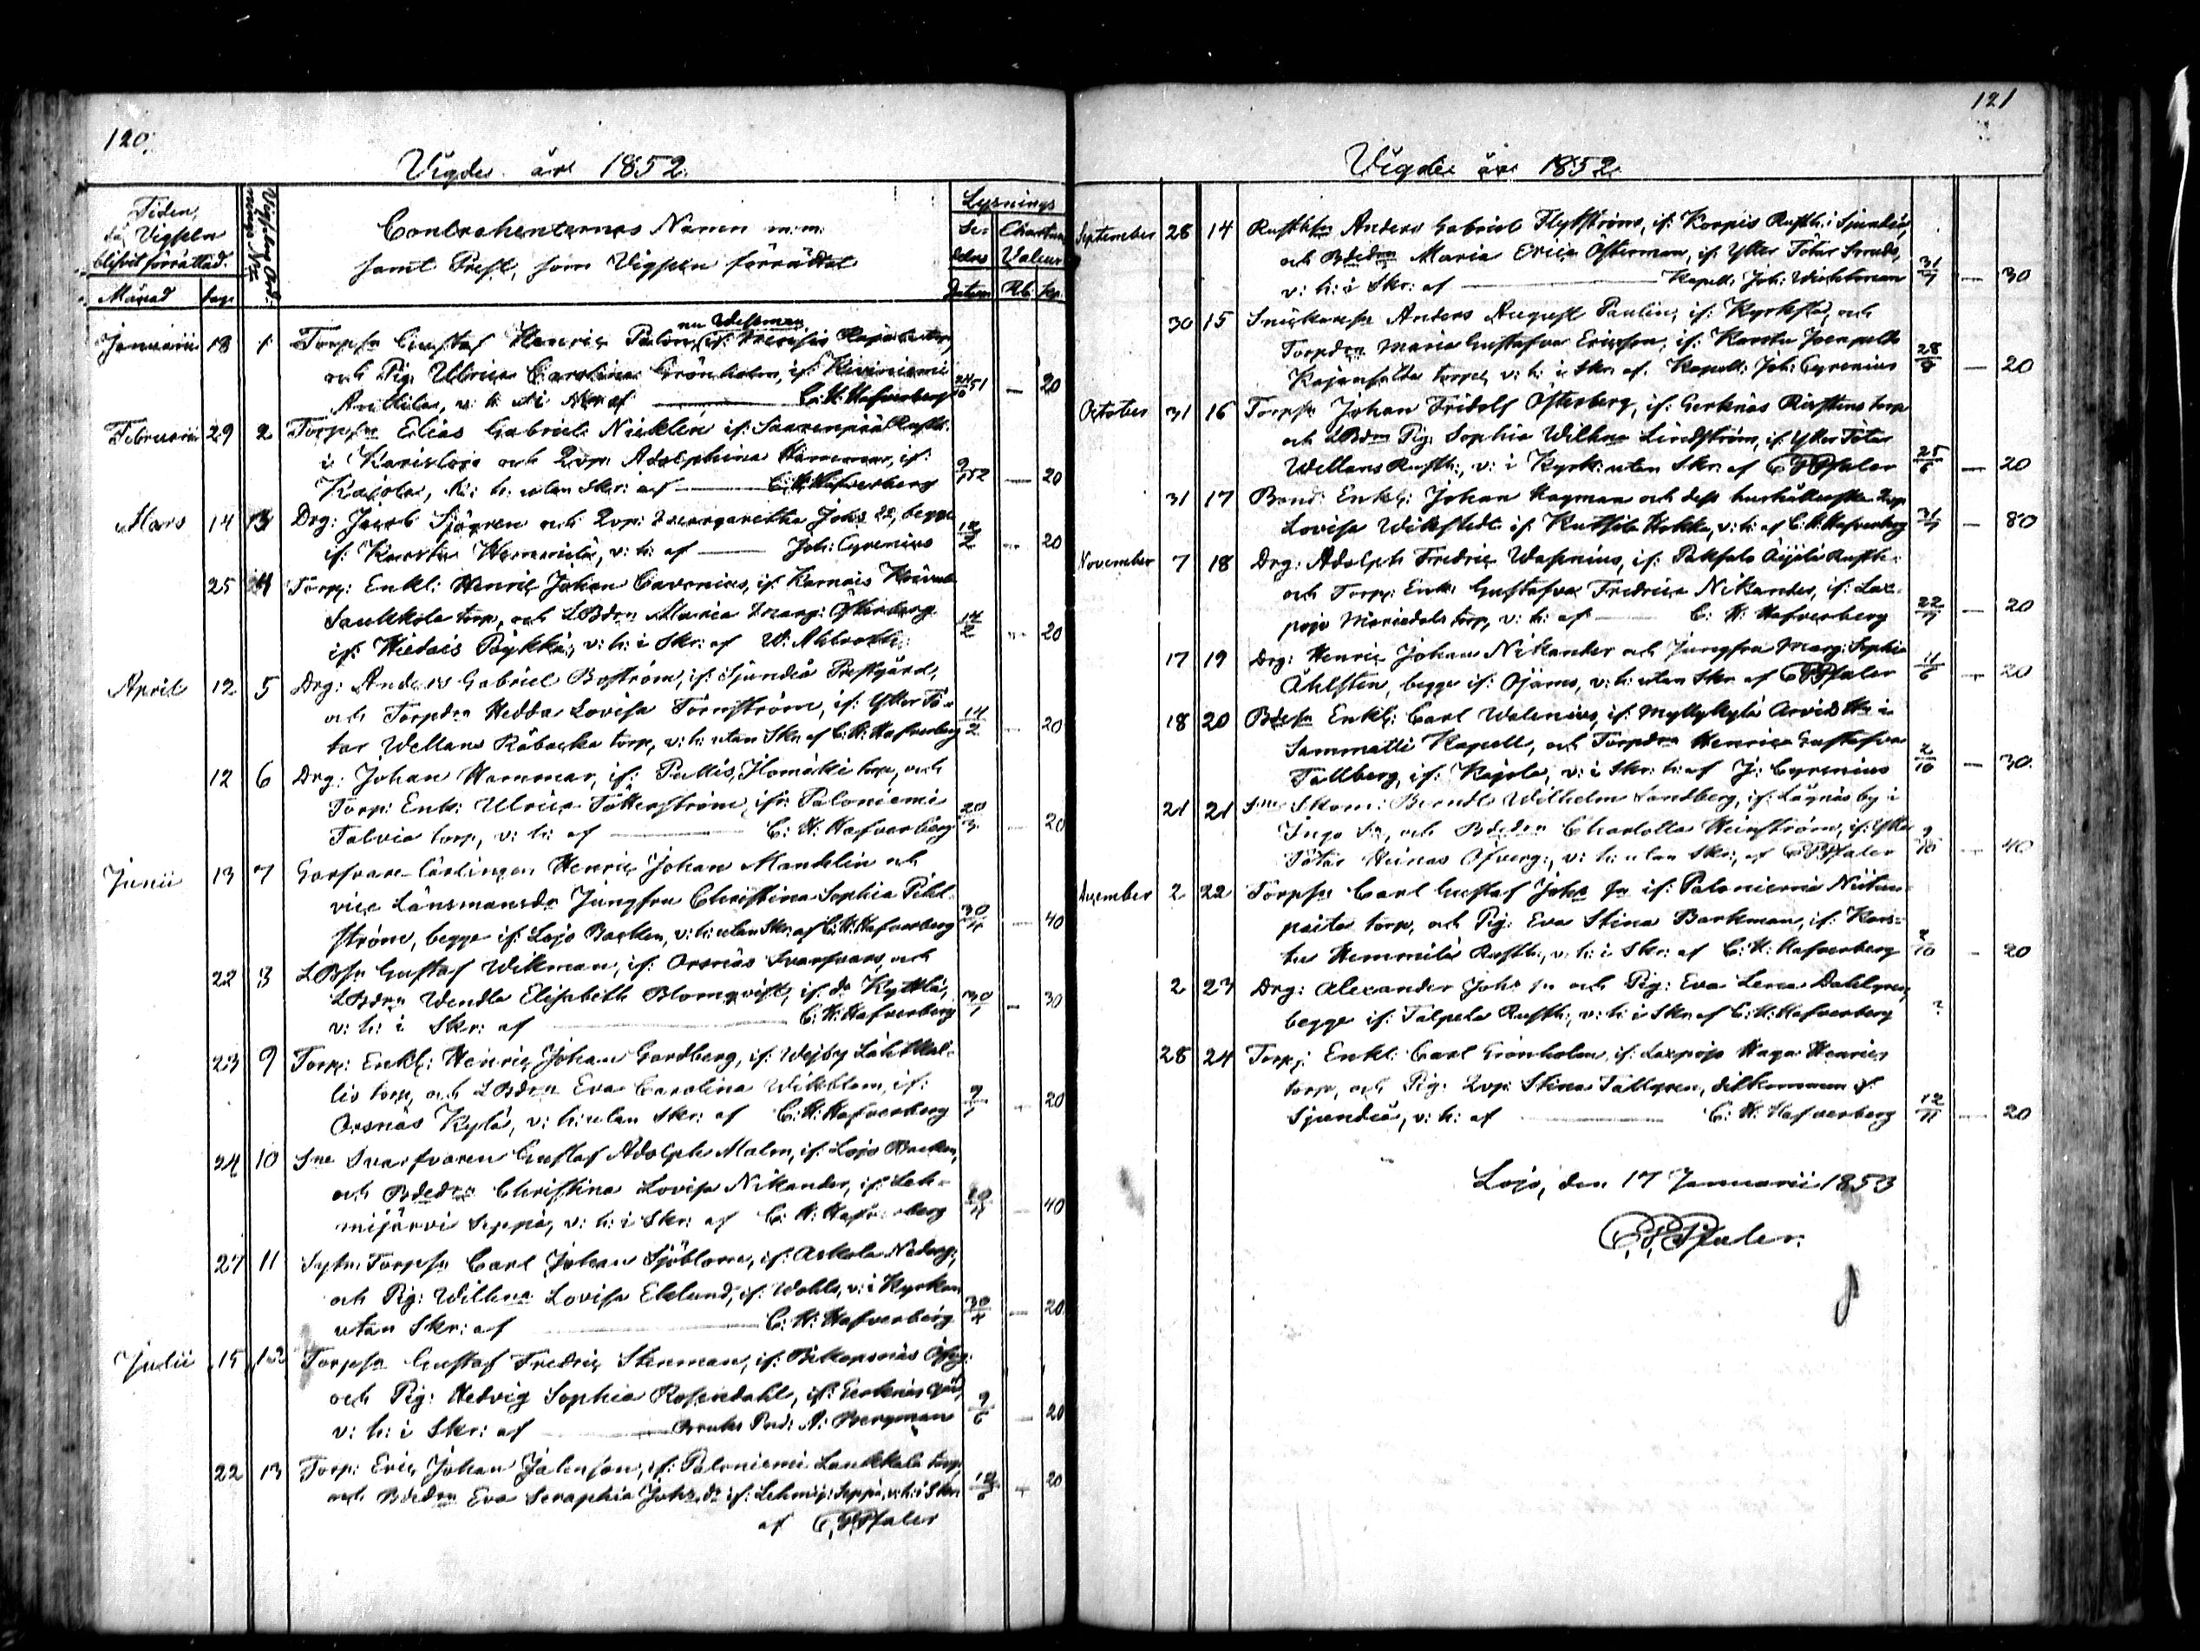 120.
Vigde år 1852.
Tiden,
då Vigseln
blifvit förrättad.
Månad dag.
Contrahenternas Namn m:m:
samt Prest, som Vigseln förrättat
Lysnings
Se- Chartæ
delns Valeur
Datum Rb: kp:
nu Wessman
Januarii 18 1 Torpsn Gustaf Henric
och Pig. Ulrica Carolina Grönholm, if: Kiviniemi
Anttilas, v: h: af C: H: Hafverberg 51 — 20
Februarii 29 2 Torpsn Elias Gabriel Nicklin if: Saarenpää Rusth:
i Karislojo och Qvp: Adolphina if:
v: h: utan Skr: af C: H: Hafverberg 52 — 20
Mars 14 3 Drg: Jacob Sjögren och Qvp: Margaretha Johs dr, begge
if: Karstu Hemmilä, v: h: af — Joh: Cyrenius 2 — 20
25 4 Torp: Enkl: Henric Johan Cavonius, if: Karnais
Laukkola torp, och LBdrn Maria Marg: Österberg
if: Hiidais Pöykkä, v: h: i Skr: af W: Ahlroth: 2 — 20
April 12 5 Drg: Anders Gabriel Boström, if: Sjundeå Prestgård,
och Torpdrn Hedda Lovisa Törnström, if: Ytter Tö-
tar Wellans Råbacka torp, v: h: utan Skr: af C: H: Hafverberg 14/2 — 20
12 6 Drg: Johan Hammar, if: Pullis, torp, och
Torp: Enk: Ulrica if: Paloniemi
Talvia torp, v: h: af — C: H: Hafverberg 20/3 — 20
Junii 13 7 Garfvare Lärlingen Henric Johan Mandelin och
vice Länsmansdr Jungfru Christina Sophia Pihl-
ström, begge if: Lojo Backen, v: h: utan Skr: af C: H: Hafverberg 30 — 40
22 8 LBsn Gustaf Wikman, if: Orsnäs Svarfvars, och
LBdrn Wendla Elisabeth Blomqvist, if: do Kyttlä,
v: h: i Skr: af — C: H: Hafverberg 30 — 30
23 9 Torp: Enkl: Henric Johan Gordberg, if: Wejby
lio torp, och LBdrn Eva Carolina Wikblom, if:
Orsnäs Kylä, v: h: utan Skr: af C: H: Hafverberg 9 — 20
24 10 Sne Svarfvaren Gustaf Adolph Malm, if: Lojo Backen,
och Bdedrn Christina Lovisa Nikander, if: Leh-
mijärvi Seppä, v: h: i Skr: af C: H: Hafverberg — 40
27 11 Sytn: Torpsn Carl Johan Sjöblom, if: Askola Nederg:
och Pig: Wilhna Lovisa Eklund, if: Wohls, v: i Kyrkan
utan Skr: af — C: H: Hafverberg 30 — 20
Julii 15 12 Torpsn Gustaf Fredric Stenman, if: Biskopsnäs Öfvg:
och Pig: Hedvig Sophia Rosendahl, if: Gerknäs gård,
v: h: i Skr: af — Bruks Pred: A: Bergman 9/6 — 20
22 13 Torp: Eric Johan Johansson, if: Paloniemi Laukkala torp
och Bdedrn Eva Seraphia Johs dr if: Lehmij: Seppä, v: h: i Skr:
af CFPfaler — 20
121
Vigde år 1852.
September 28 14 Rusthsn Anders Gabriel Flytström, if: Korpis Rusth: i Sjundeå,
och Bdedrn Maria Erica Österman, if: Ytter Tötar
v: h: i Skr: af — Kapell: Joh: Wichtman 31/7 — 30
30 15 Snickaresn Anders August Paulin, if: Kyrkstad, och
Torpdrn Maria Gustafva Ericsson, if: Karstu Joenpelto
torp, v: h: i Skr: af Kapell: Joh: Cyrenius 28/8 — 20
October 31 16 Torpsn Johan Fridolf Österberg, if: Gerknäs torp
och LBdrn Pig: Sophia Wilhna Lindström, if: Ytter Tötar
Wellans Rusth:, v: i Kyrk: utan Skr: af CFPfaler 25 — 20
31 17 Bond: Enkl: Johan Hagman och dess hushållerska Qvp
Lovisa Wikstedt if: v: h: af C: H: Hafverberg 31 — 80
November 7 18 Drg: Adolph Fredric Wasenius, if: Rusth:
och Torp: Enk: Gustafva Fredrica Nikander, if: Lax-
pojo Mariedals torp, v: h: af — C: H: Hafverberg 22 — 20
17 19 Drg: Henric Johan Nikander och Jungfru Marg: Sophia
Åhlsten, begge if: Ojamo, v: h: utan Skr: af CFPfaler 11/6 — 20
18 20 Bdesn Enkl: Carl Walenius, if: Myllykylä Arvid i
Sammatti Kapell, och Torpdrn Henrica Gustafva
Tallberg, if: v: i Skr: h: af J: Cyrenius 2/10 — 30.
21 21 Sme Skom: Berndt Wilhelm Sandberg, if: Lågnäs by i
Ingo Sn, och Bdedrn Charlotta Heinström, if: Ytter
Tötar Heinas Öfverg:, v: h: utan Skr: af CFPfaler 9/10 — 40
December 2 22 Torpsn Carl Gustaf Johs sn if: Paloniemi Niitun-
torp, och Pig: Eva Stina Barkman, if: Kars-
tu Hemmilä Rusth:, v: h: i Skr: af C: H: Hafverberg 2/10 — 20
2 23 Drg: Alexander Johs sn och Pig: Eva Lena Dahlgren,
begge if: Talpela Rusth:, v: h: i Skr: af C: H: Hafverberg ?
28 24 Torp: Enkl: Carl Grönholm, if: Laxpojo Haga Henrics
torp, och Pig: Qvp: Stina Tallgren, ditkommen fr:
Sjundeå, v: h: af — C: H: Hafverberg 12/11 — 20
Lojo, den 17 Januarii 1853
CFPfaler.